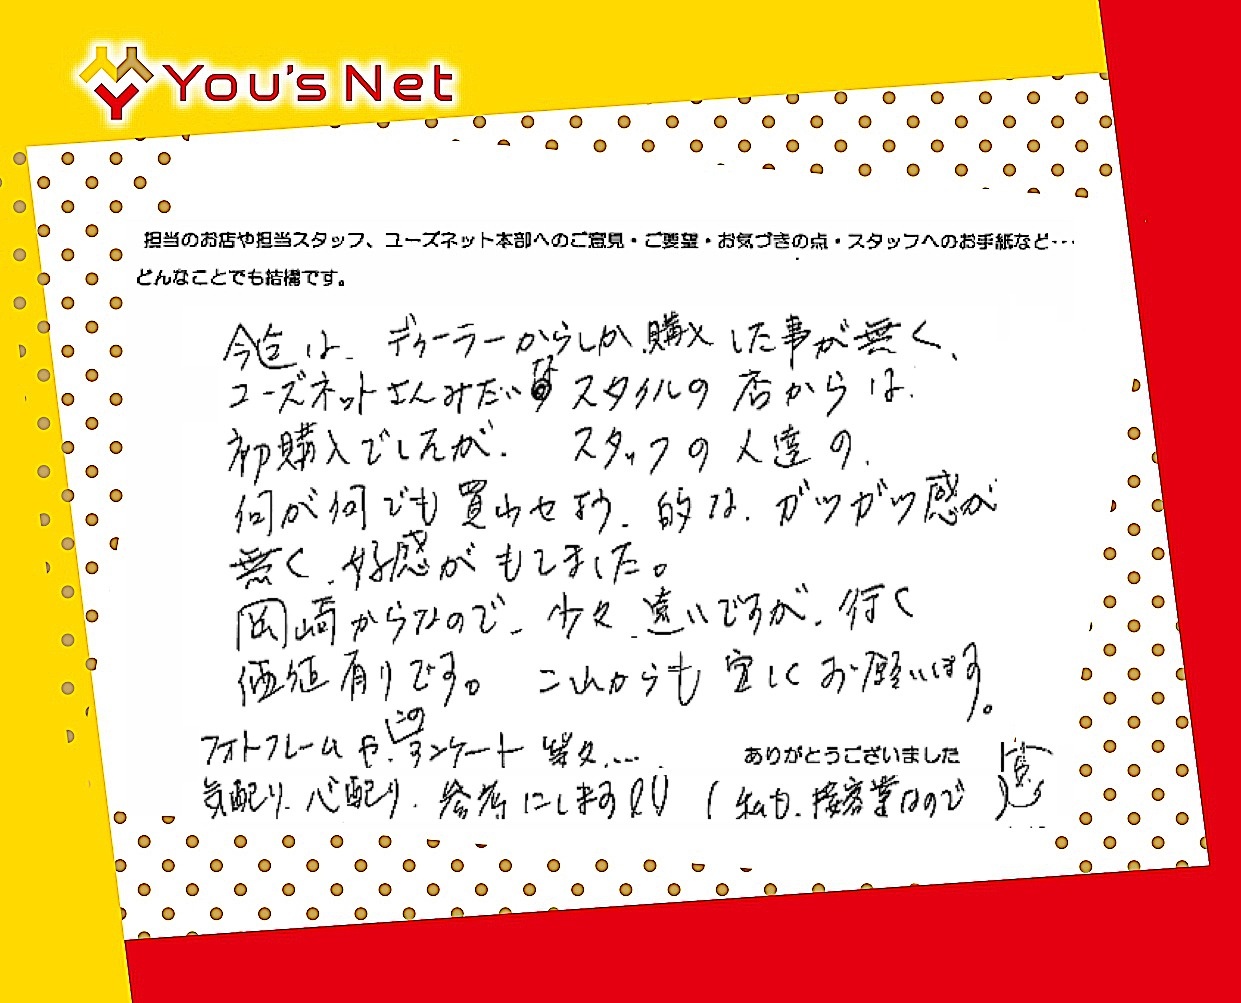 You's Net
担当のお店や担当スタッフ、ユーズネット本部へのご意見・ご要望・お気づきの点・スタッフへのお手紙など…
どんなことでも結構です。
今迄は、ディーラーからしか購入した事が無く、
ユーズネットさんみたいな スタイルの 店からは、
初購入でしたが、 スタッフの人達の、
何が何でも買わせよう、的な、ガツガツ感が
無く、好感がもてました。
岡崎からなので、少々、遠いですが、行く
価値有りです。 これからも宜しくお願いします。
フォトフレームや、このアンケート等々、…
ありがとうございました
気配り、心配り、参考にします!! (私も、接客業なので)